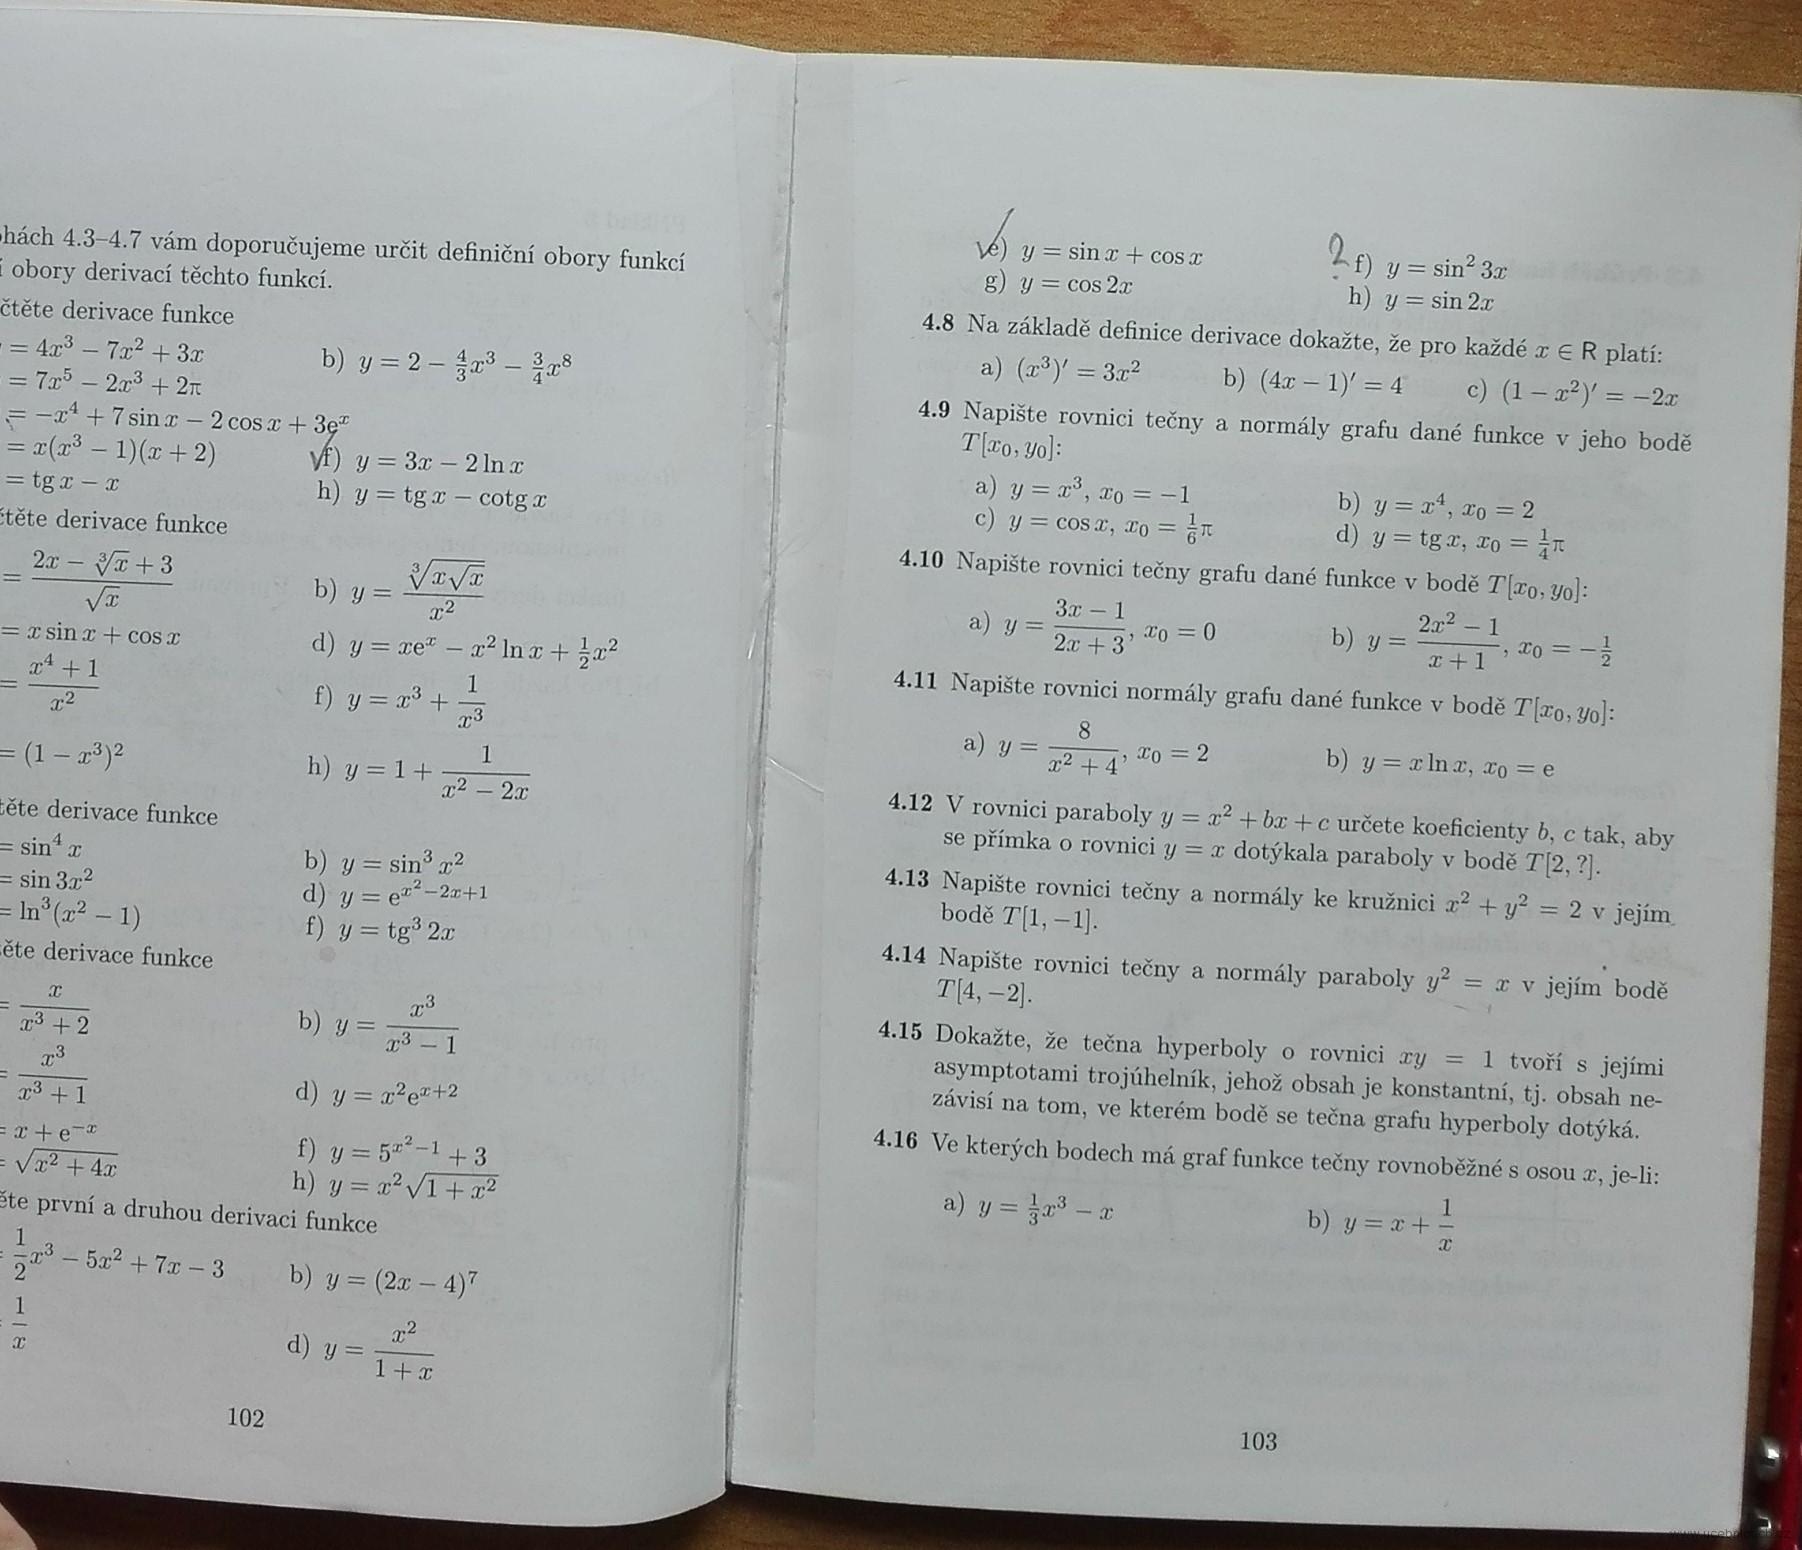 hách 4.3–4.7 vám doporučujeme určit definiční obory funkcí
í obory derivací těchto funkcí.
čtěte derivace funkce
= 4x³ − 7x² + 3x b) y = 2 − 4/3 x³ − 3/4 x⁸
= 7x⁵ − 2x³ + 2π
= −x⁴ + 7 sin x − 2 cos x + 3eˣ
= x(x³ − 1)(x + 2) f) y = 3x − 2 ln x
= tg x − x h) y = tg x − cotg x
čtěte derivace funkce
= (2x − ∛x + 3)/√x b) y = ∛(x√x)/x²
= x sin x + cos x d) y = xeˣ − x² ln x + 1/2 x²
= (x⁴ + 1)/x² f) y = x³ + 1/x³
= (1 − x³)² h) y = 1 + 1/(x² − 2x)
těte derivace funkce
= sin⁴ x b) y = sin³ x²
= sin 3x² d) y = e^(x²−2x+1)
= ln³(x² − 1) f) y = tg³ 2x
ěte derivace funkce
= x/(x³ + 2) b) y = x³/(x³ − 1)
= x³/(x³ + 1) d) y = x²e^(x+2)
= x + e^(−x) f) y = 5^(x²−1) + 3
= √(x² + 4x) h) y = x²√(1 + x²)
ěte první a druhou derivaci funkce
= 1/2 x³ − 5x² + 7x − 3 b) y = (2x − 4)⁷
1/x d) y = x²/(1 + x)
102
e) y = sin x + cos x ? f) y = sin² 3x
g) y = cos 2x h) y = sin 2x
4.8 Na základě definice derivace dokažte, že pro každé x ∈ R platí:
a) (x³)′ = 3x² b) (4x − 1)′ = 4 c) (1 − x²)′ = −2x
4.9 Napište rovnici tečny a normály grafu dané funkce v jeho bodě
T[x₀, y₀]:
a) y = x³, x₀ = −1 b) y = x⁴, x₀ = 2
c) y = cos x, x₀ = 1/6 π d) y = tg x, x₀ = 1/4 π
4.10 Napište rovnici tečny grafu dané funkce v bodě T[x₀, y₀]:
a) y = (3x − 1)/(2x + 3), x₀ = 0 b) y = (2x² − 1)/(x + 1), x₀ = −1/2
4.11 Napište rovnici normály grafu dané funkce v bodě T[x₀, y₀]:
a) y = 8/(x² + 4), x₀ = 2 b) y = x ln x, x₀ = e
4.12 V rovnici paraboly y = x² + bx + c určete koeficienty b, c tak, aby
se přímka o rovnici y = x dotýkala paraboly v bodě T[2, ?].
4.13 Napište rovnici tečny a normály ke kružnici x² + y² = 2 v jejím
bodě T[1, −1].
4.14 Napište rovnici tečny a normály paraboly y² = x v jejím bodě
T[4, −2].
4.15 Dokažte, že tečna hyperboly o rovnici xy = 1 tvoří s jejími
asymptotami trojúhelník, jehož obsah je konstantní, tj. obsah ne-
závisí na tom, ve kterém bodě se tečna grafu hyperboly dotýká.
4.16 Ve kterých bodech má graf funkce tečny rovnoběžné s osou x, je-li:
a) y = 1/3 x³ − x b) y = x + 1/x
103